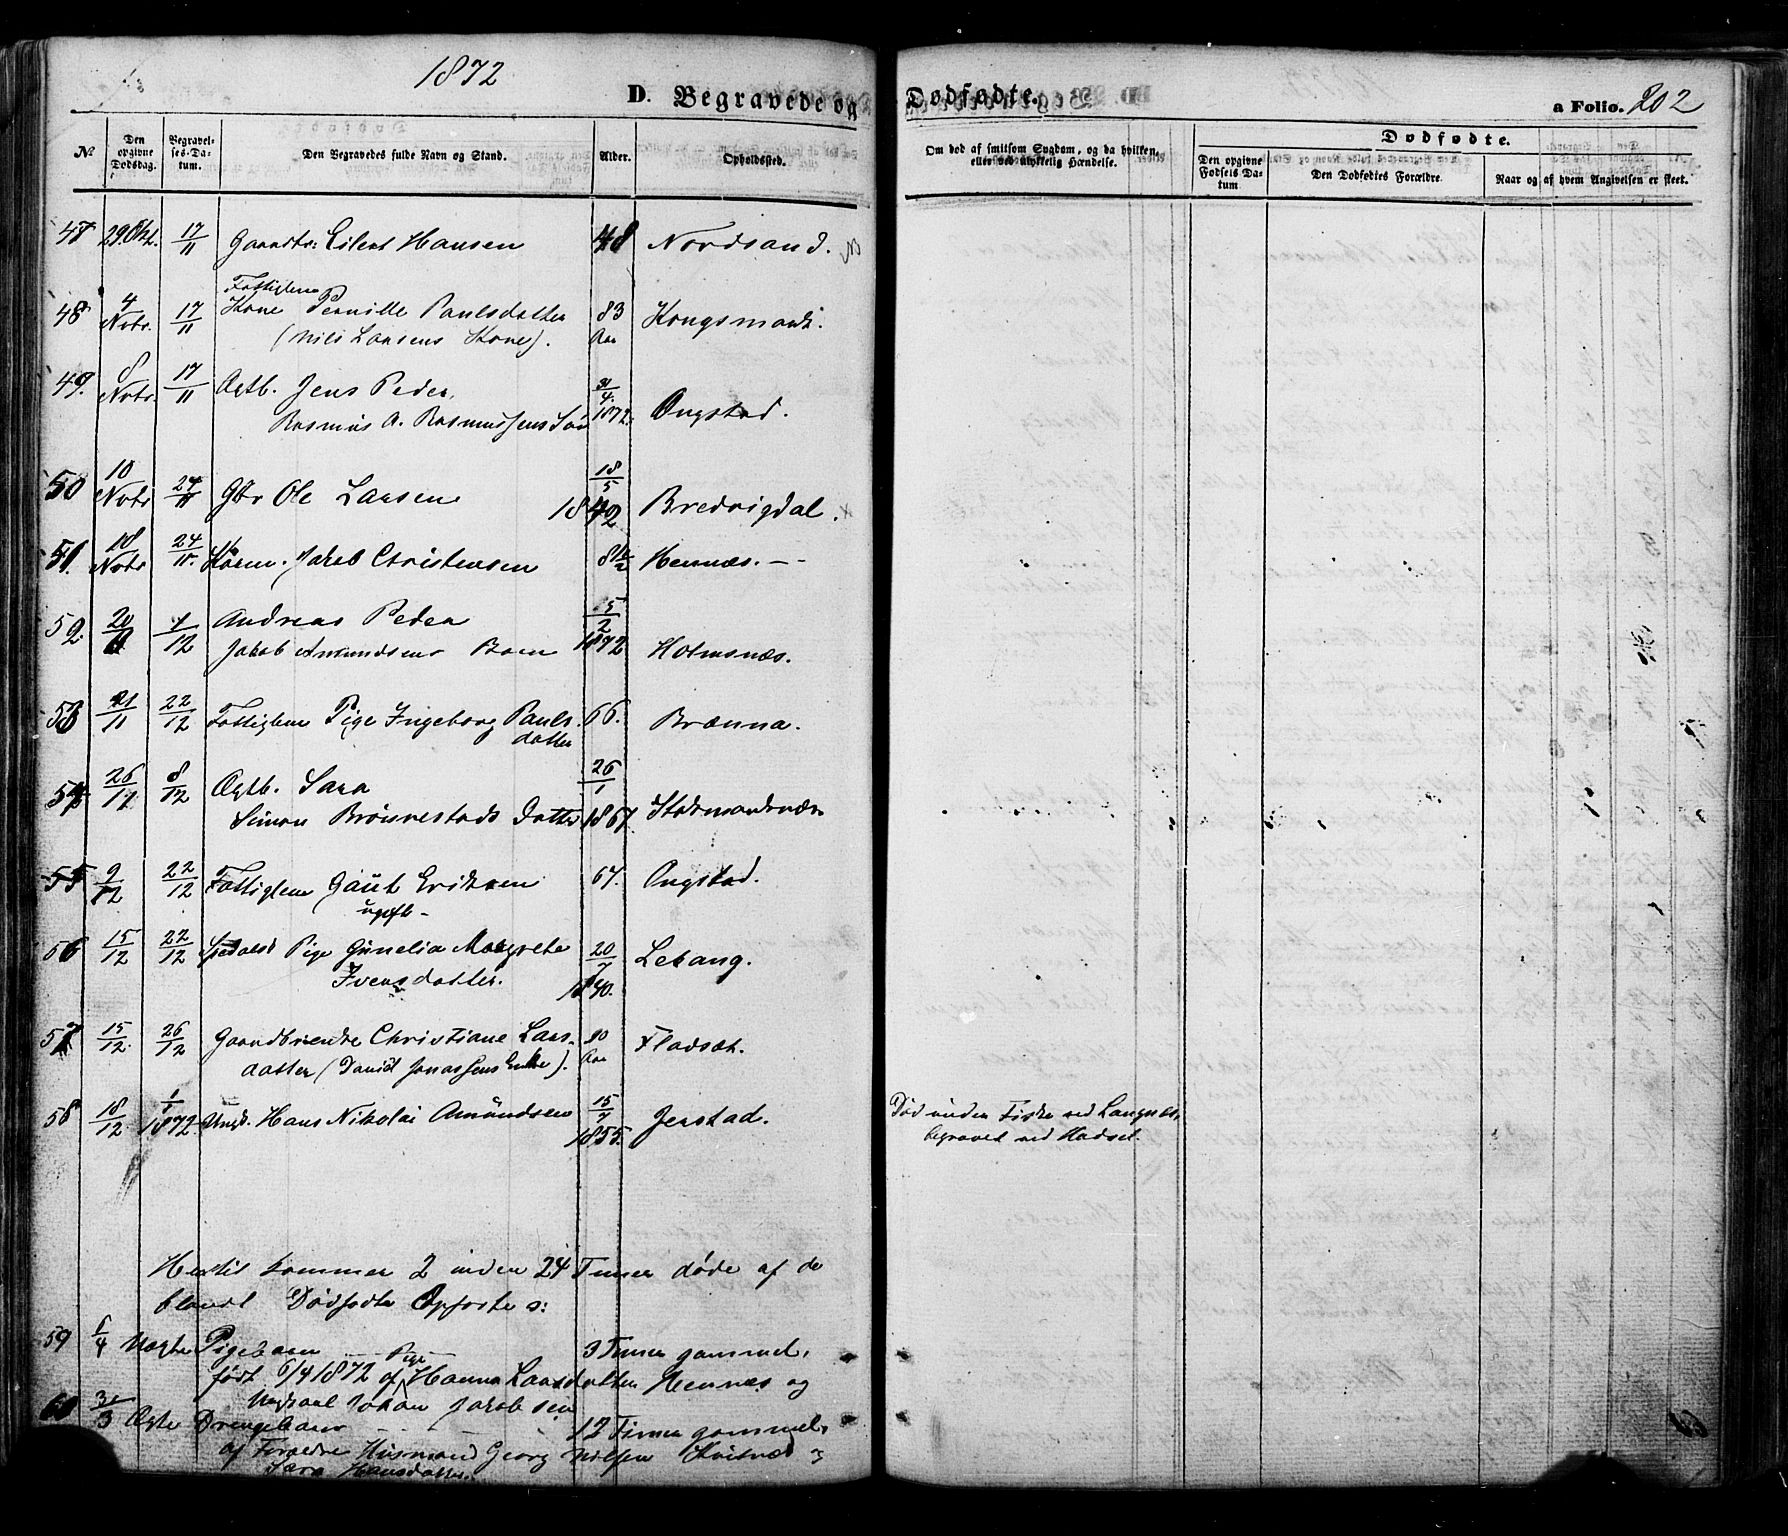 1872
D. Begravede og Dodfødte.
a Folio. 202
№ Den opgivne Dødsdag. Begravelses-Datum. Den Begravedes fulde Navn og Stand. Alder. Opholdssted.
Om død af smitsom Sygdom, og da hvilken, eller ved ulykkelig Hændelse.
Dødfødte.
Den opgivne Fødsels Datum. Den Dødfødtes Forældre. Naar og af hvem Angivelsen er skeet.
47 29 Okt. 17/11 Gaardbr. Eilert Hansen 48 Nordsand.
Fattiglem
48 4 Novbr. 17/11 Kone Pernille Paulsdatter 83 Aar Kongsmark.
(Nils Larsens Kone).
49. 8 Novbr. 17/11 Ægtb. Jens Peder, 4. 1872. Ongstad.
Rasmus A. Rasmussens Søn
50 10 Novbr 24/11 Gbr Ole Larsen 18/5 1842 Bredvigdal.
51. 18 Novbr 24/11. Jakob Christensen 81 1/2 Hennæs. --
52. 20/11 1/12 Andreas Peder 5/2 1872 Holmsnæs.
Jakob Amundsens Barn
53 21/11 22/12 Fattiglem Pige Ingeborg Pauls- 66. Brænna.
datter
54 26/11 8/12 Ægtb. Sara 26/1 1867.
Simon Brönnestads Datter
55 9/12 22/12 Fattiglem Gaut Eriksen 67. Ongstad.
ugift-
56 15/12 22/12 Spedalsk Pige Gunelia Margrete 20/7 1840. Lekang.
Ivensdatter.
57 15/12. 26/12 Christiane Lars- 80 Aar Fladsæt.
datter (David Jonassens Enke).
58 18/12 1/1 1872. Ungk. Hans Nikolai Amundsen 15/7 1855. Jerstad.
Död under Fiske ved Langnæs,
begravet ved Hadsel.
Hertil kommer 2 inden 24 Timer døde af de
blandt Dødfødte Opførte s:
59 6/4 Uægte Pigebarn -- 3 Timer gammel,
født 6/4 1872 af Pige Hanna Larsdatter Hennæs og
Ungkarl Johan Jakobsen
60 3 Ægte Drengebarn - - - 12 Timer gammel,
af Forældre Husmand Georg Nilsen Kvitnæs og
Sara Hansdatter.